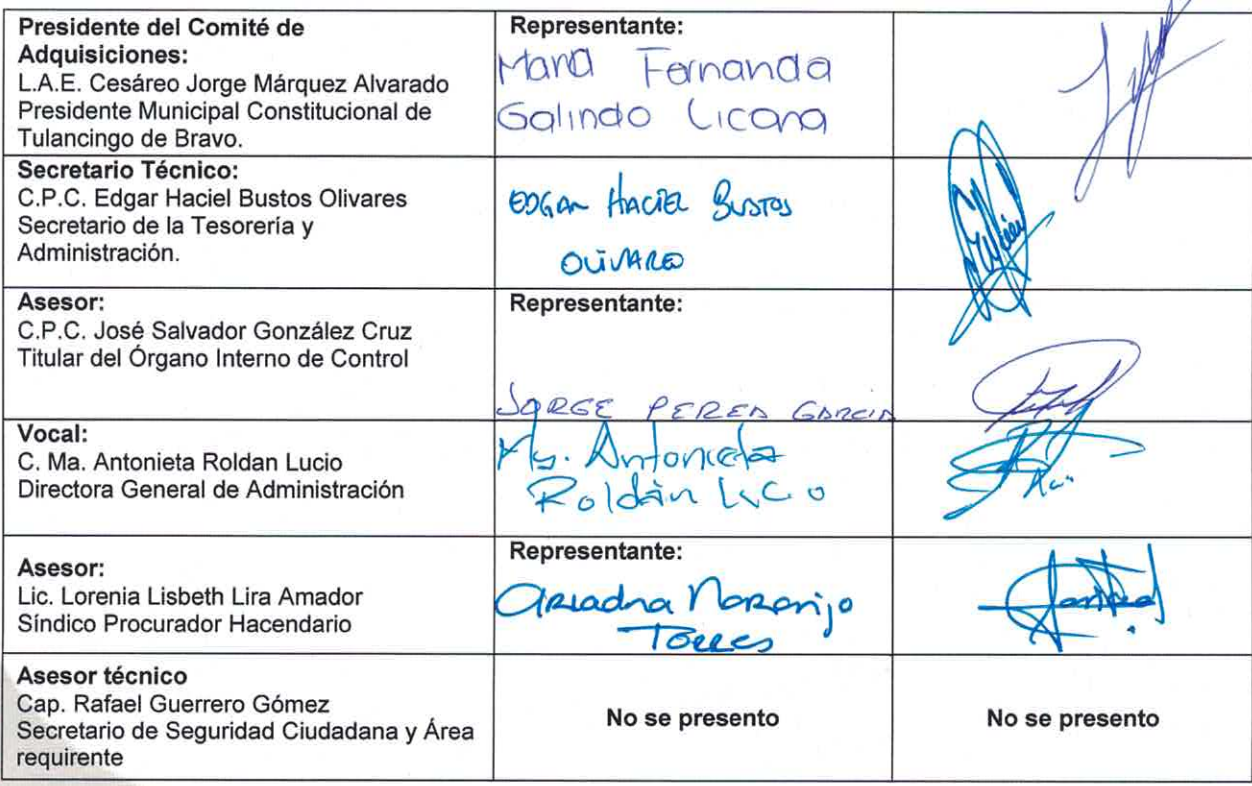 Presidente del Comité de
Adquisiciones:
L.A.E. Cesáreo Jorge Márquez Alvarado
Presidente Municipal Constitucional de
Tulancingo de Bravo.
Representante:
Maria Fernanda
Galindo Licona
Secretario Técnico:
C.P.C. Edgar Haciel Bustos Olivares
Secretario de la Tesorería y
Administración.
EDGAR HACIEL BUSTOS
OLIVARES
Asesor:
C.P.C. José Salvador González Cruz
Titular del Órgano Interno de Control
Representante:
JORGE PEREA GARCIA
Vocal:
C. Ma. Antonieta Roldan Lucio
Directora General de Administración
Antonieta
Roldán Lucio
Asesor:
Lic. Lorenia Lisbeth Lira Amador
Síndico Procurador Hacendario
Representante:
Ariadna Naranjo
Torres
Asesor técnico
Cap. Rafael Guerrero Gómez
Secretario de Seguridad Ciudadana y Área
requirente
No se presento
No se presento